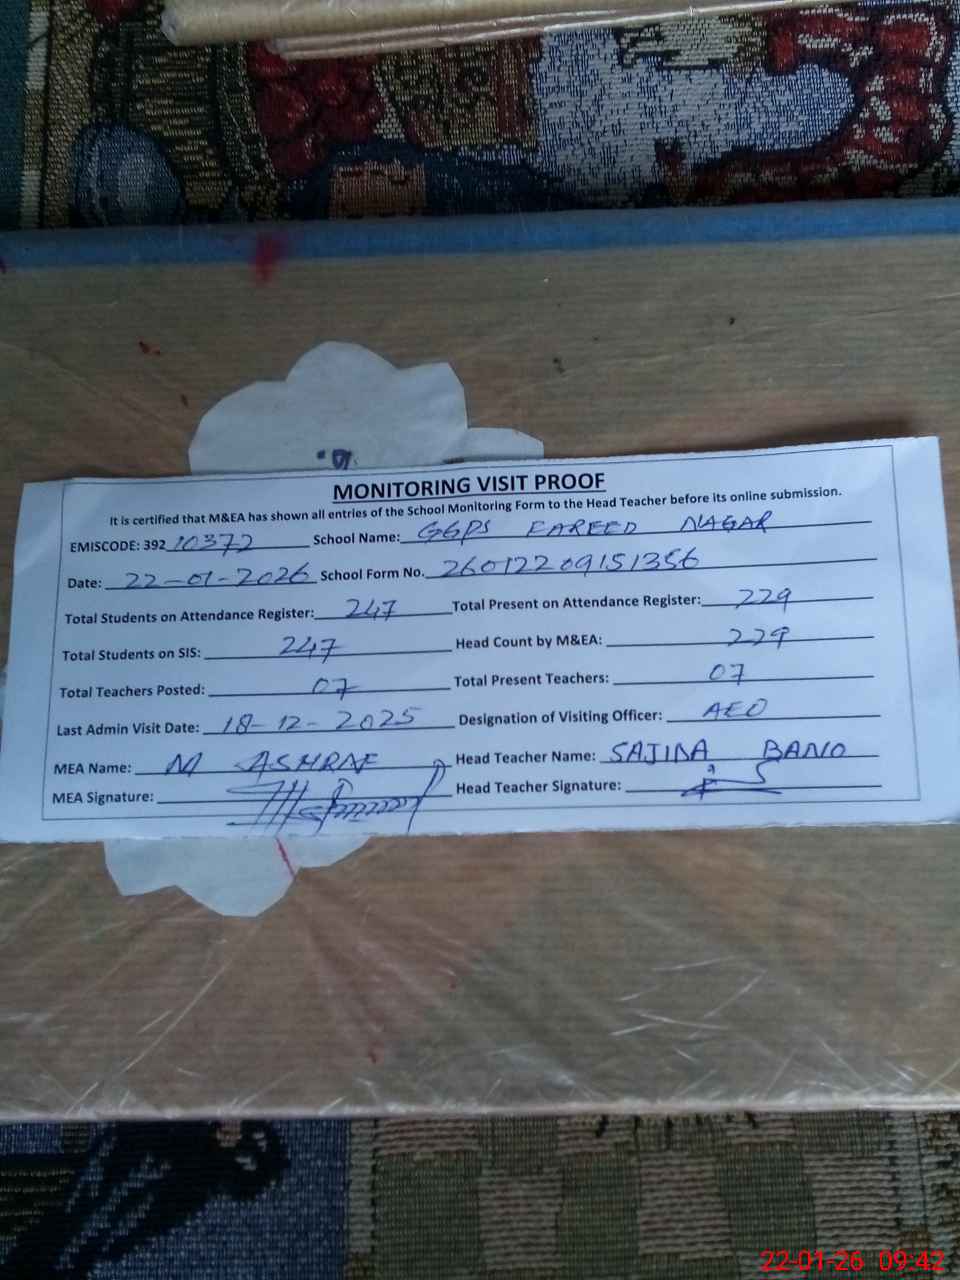 MONITORING VISIT PROOF
It is certified that M&EA has shown all entries of the School Monitoring Form to the Head Teacher before its online submission.
EMISCODE: 392 10372 School Name: GGPS FAREED NAGAR
Date: 22-01-2026 School Form No. 26012209151356
Total Students on Attendance Register: 247 Total Present on Attendance Register: 229
Total Students on SIS: 247 Head Count by M&EA: 229
Total Teachers Posted: 07 Total Present Teachers: 07
Last Admin Visit Date: 18-12-2025 Designation of Visiting Officer: AEO
MEA Name: M ASHRAF Head Teacher Name: SAJIDA BANO
MEA Signature: Head Teacher Signature:
22-01-26 09:42